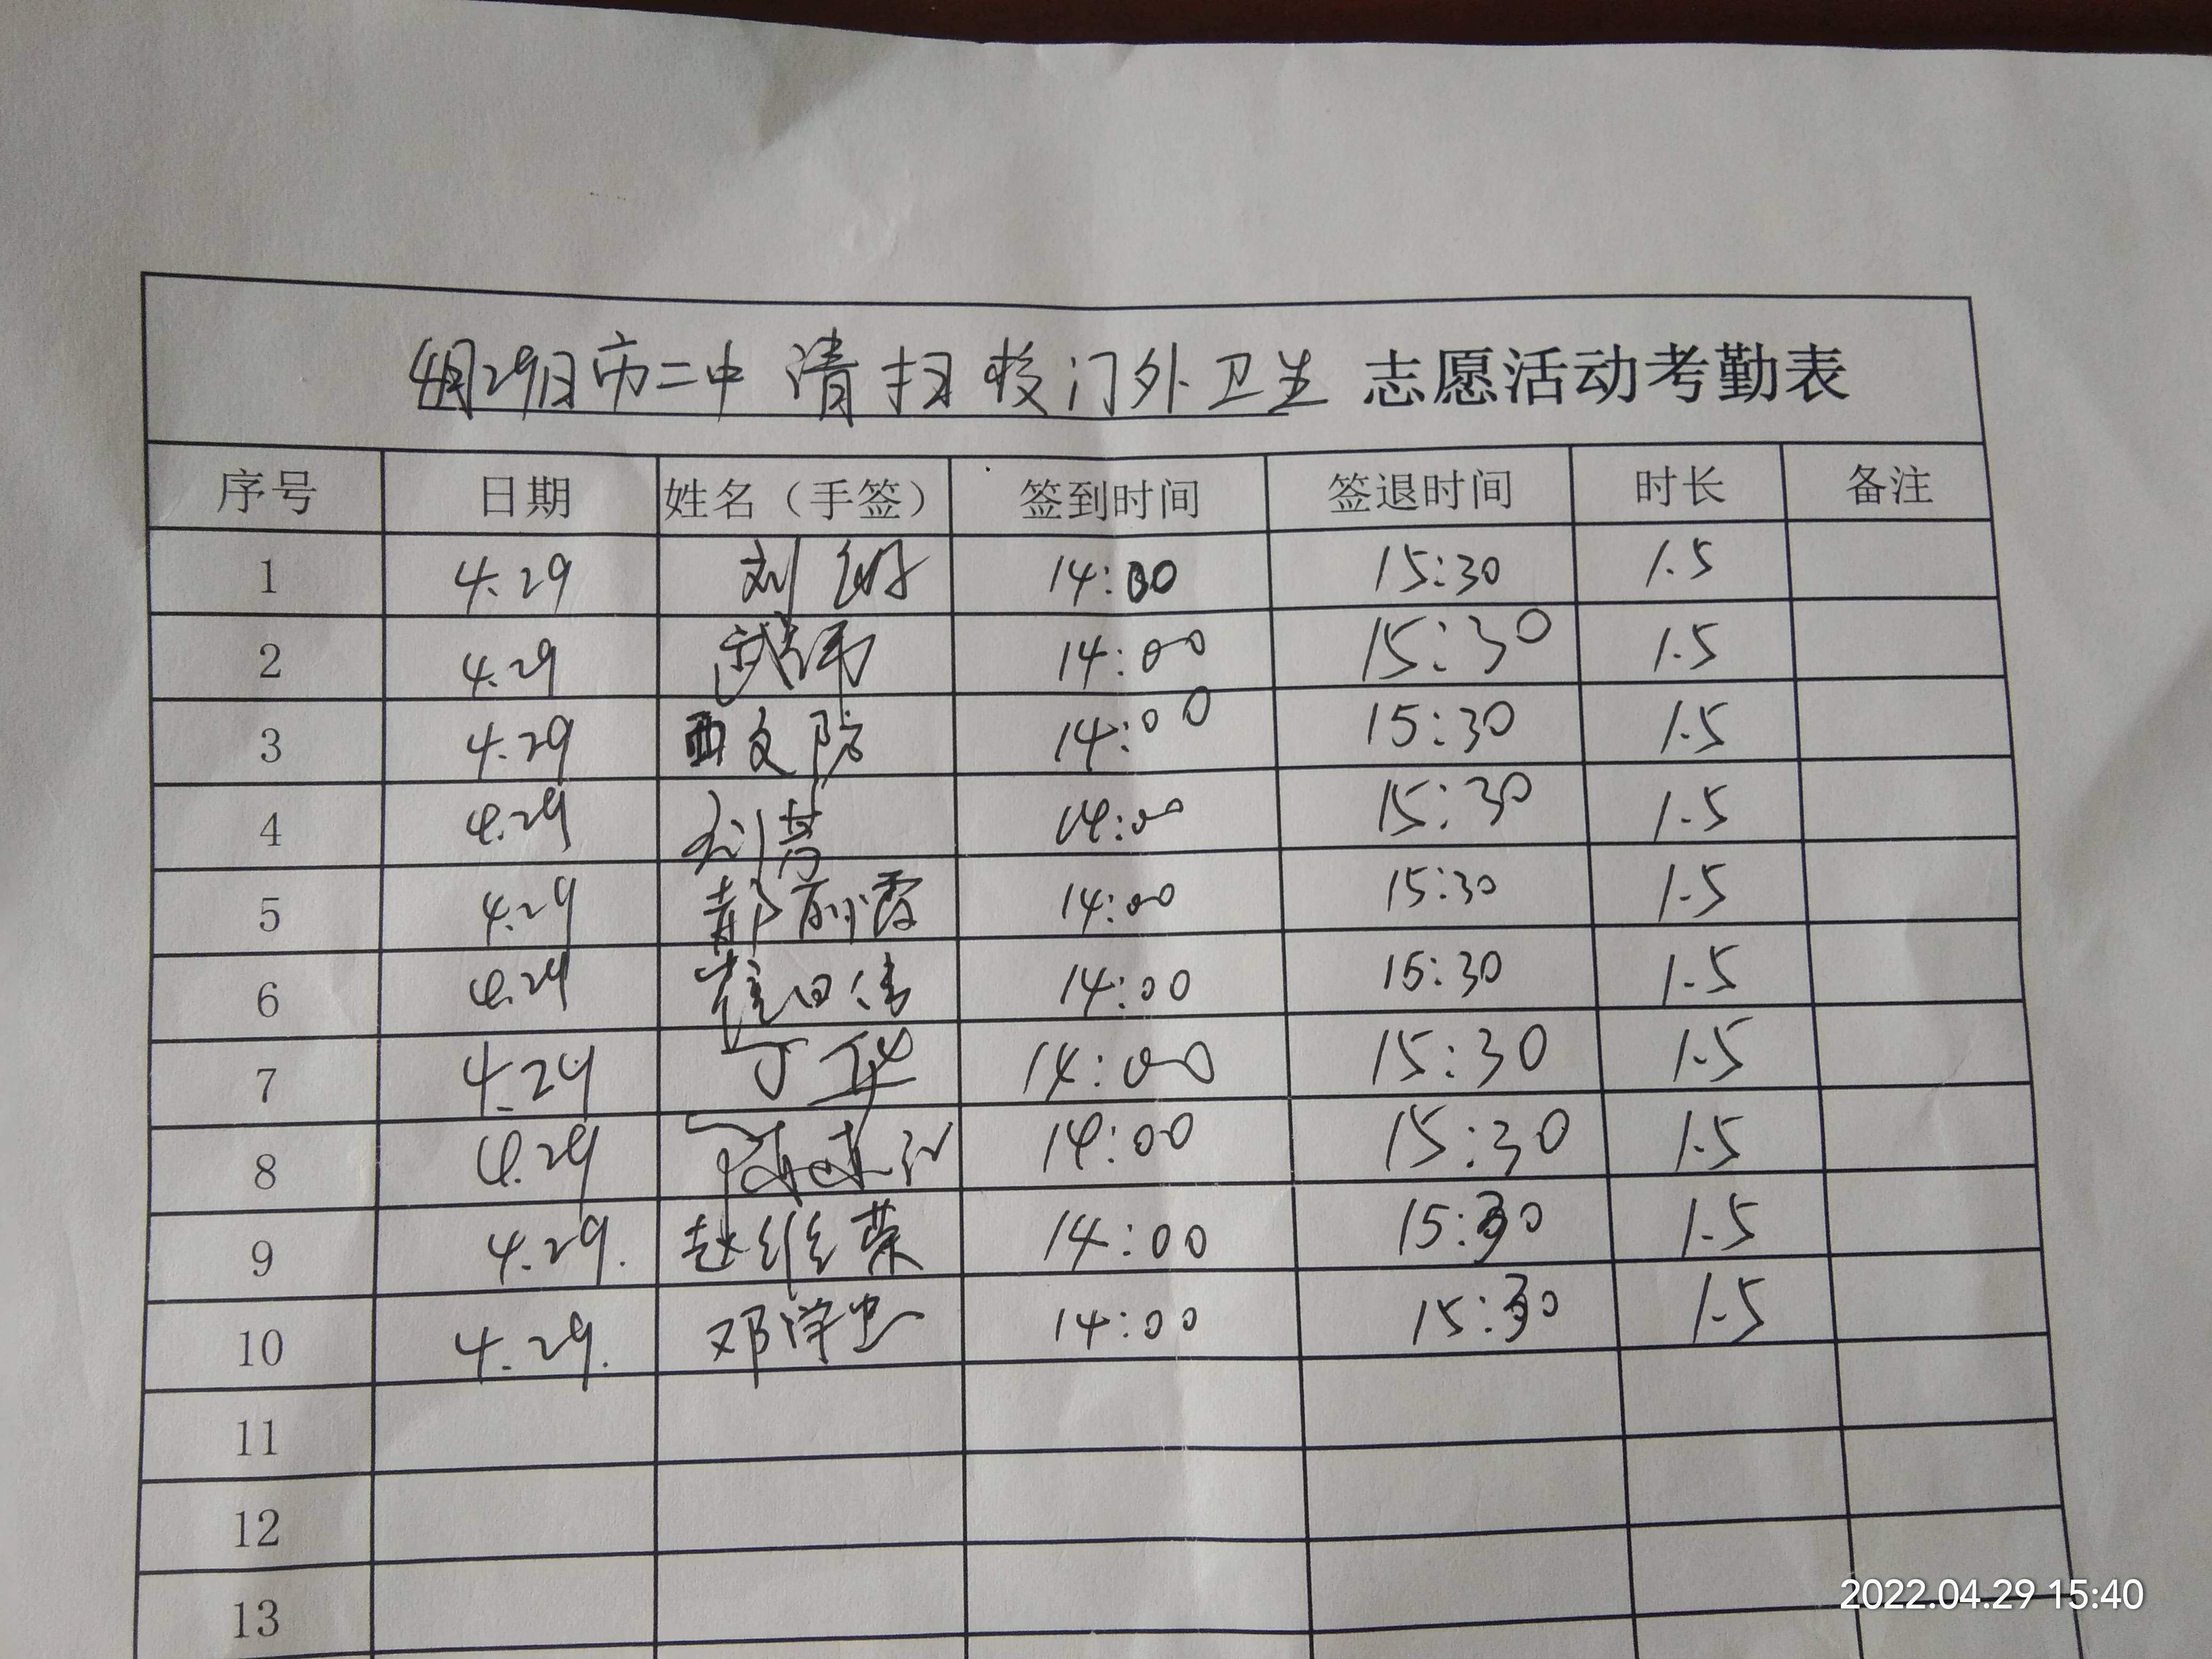 4月29日市二中清扫校门外卫生志愿活动考勤表
序号 日期 姓名（手签） 签到时间 签退时间 时长 备注
1 4.29 刘 14:00 15:30 1.5
2 4.29 武伟 14:00 15:30 1.5
3 4.29 西文 14:00 15:30 1.5
4 4.29 刘 14:00 15:30 1.5
5 4.29 郝丽霞 14:00 15:30 1.5
6 4.29 14:00 15:30 1.5
7 4.29 丁华 14:00 15:30 1.5
8 4.29 14:00 15:30 1.5
9 4.29. 赵维荣 14:00 15:30 1.5
10 4.29. 邓学忠 14:00 15:30 1.5
11
12
13
2022.04.29 15:40